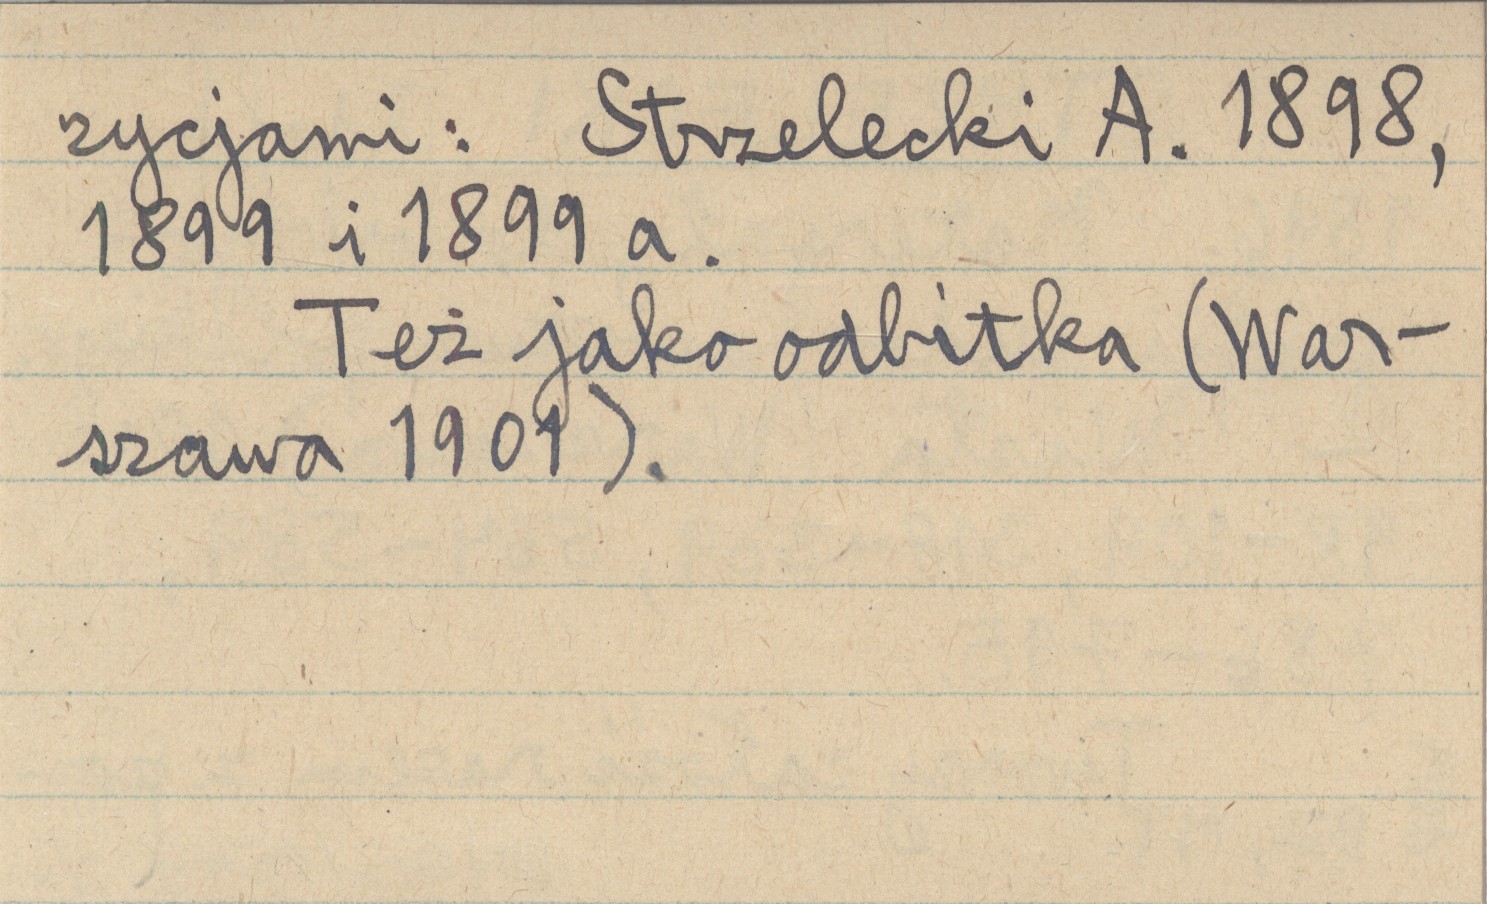 zycjami: Strzelecki A. 1898,
1899 i 1899 a.
Też jako odbitka (War-
szawa 1901).